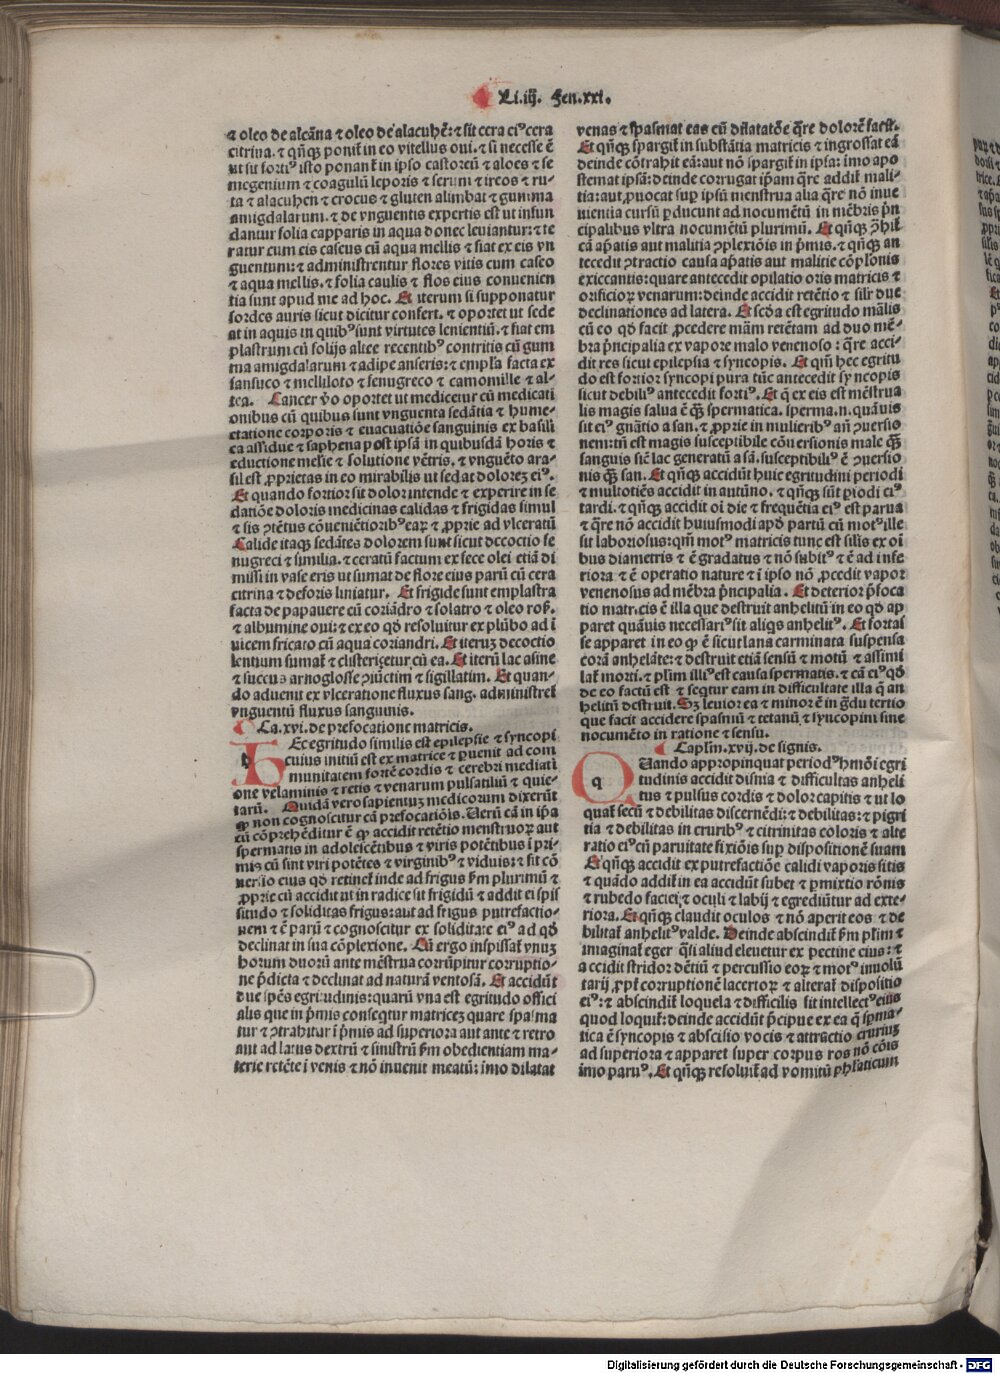 Li.iij. Fen.xxi.
⁊ oleo de alcāna ⁊ oleo de alacuhē:⁊ sit cera eiꝰcera
citrina.⁊ qn̄qꝫ ponit̄ in eo vitellus oui.⁊ si necesse ē
ut sit fortiꝰ isto ponant̄ in ipso castoreū ⁊ aloes ⁊ se
megenium ⁊ coagulū leporis ⁊ serum ⁊ ireos ⁊ ru-
ta ⁊ alacuhen ⁊ crocus ⁊ gluten alimbat ⁊ gumma
amigdalarum.⁊ de vnguentis expertis est ut infun
dantur folia capparis in aqua donec leniantur:⁊ te
ratur cum eis caseus cū aqua mellis ⁊ fiat ex eis vn
guentum:⁊ administrentur flores vitis cum caseo
⁊ aqua mellis.⁊ folia caulis ⁊ flos eius conuenien
tia sunt apud me ad hoc. Et iterum si supponatur
sordes auris sicut dicitur confert.⁊ oportet ut sede
at in aquis in quibꝰsunt virtutes lenientiū.⁊ fiat em
plastrum cū folijs altee recentibꝰ contritis cū gum
ma amigdalarum ⁊ adipe anseris:⁊ emplr̄a facta ex
sansuco ⁊ melliloto ⁊ fenugreco ⁊ camomille ⁊ al-
tea. Cancer v̄o oportet ut medicetur cū medicati
onibus cū quibus sunt vnguenta sedātia ⁊ hume-
ctatione corporis ⁊ euacuatiōe sanguinis ex basili
ca assidue ⁊ saphena post ipsā in quibusdā horis ⁊
eductione melāie ⁊ solutione vētris.⁊ vnguēto ara-
sil est ꝓprietas in eo mirabilis ut sedat dolorez eiꝰ.
Et quando fortior sit dolor intende ⁊ experire in se
datiōe doloris medicinas calidas ⁊ frigidas simul
⁊ sis ꝯtētus cōueniētioribꝰearꝝ ⁊ ꝓprie ad vlceratū
Calide itaqꝫ sedātes dolorem sunt sicut decoctio fe
nugreci ⁊ similia.⁊ ceratū factum ex fece olei etiā di
missi in vase eris ut sumat de flore eius parū cū cera
citrina ⁊ deforis liniatur. Et frigide sunt emplastra
facta de papauere cū coriādro ⁊ solatro ⁊ oleo ros̄.
⁊ albumine oui:⁊ ex eo qd̄ resoluitur ex plūbo ad ī
uicem fricato cū aqua coriandri. Et iteruꝫ decoctio
lentium sumat̄ ⁊ clisterizetur cū ea. Et iterū lac asine
⁊ succus arnoglosse ꝯiūctim ⁊ sigillatim. Et quan-
do aduenit ex vlceratione fluxus sang. administret̄
vnguentū fluxus sanguinis.
Ca.xvi.de prefocatione matricis.
hEc egritudo similis est epilepsie ⁊ syncopi
cuius initiū est ex matrice ⁊ ꝑuenit ad com
munitatem fortē cordis ⁊ cerebri mediatī
one velaminis ⁊ retis ⁊ venarum pulsatiliū ⁊ quie-
tarū. Quidā vero sapientuꝫ medicorum dixerūt
ꝙ non cognoscitur cā prefocatiōis. Verū cā in ip̄a
cū cōprehēditur ē ꝙ accidit retētio menstruoꝝ aut
spermatis in adolescētibus ⁊ viris potētibus ī pri-
mis cū sint viri potētes ⁊ virginibꝰ ⁊ viduis:⁊ sit cō
uersio eius qd̄ retinet̄ inde ad frigus ẜm plurimū ⁊
ꝓprie cū accidit ut in radice sit frigidū ⁊ addit ei spis
situdo ⁊ soliditas frigus:aut ad frigus putrefactio-
nem ⁊ ē parū ⁊ cognoscitur ex soliditate eiꝰ ad qd̄
declinat in sua cōplexione. Cū ergo inspissat̄ vnuꝫ
horum duorū ante mēstrua corrūpitur corruptio-
ne p̄dicta ⁊ declinat ad naturā ventosā. Et accidūt
due sp̄es egritudinis:quarū vna est egritudo offici
alis que in p̄mis conseqtur matricez quare spasma
tur ⁊ ꝯtrahitur ī p̄mis ad superiora aut ante ⁊ retro
aut ad latus dextrū ⁊ sinistrū ẜm obedientiam ma-
terie retēte ī venis ⁊ nō inuenit meatū: imo dilatat
venas ⁊ spasmat eas cū dilatatōe q̄re dolorē facit.
Et qn̄qꝫ spargit̄ in substātia matricis ⁊ ingrossat eā
deinde cōtrahit eā:aut nō spargit̄ in ipsa: imo apo
stemat ipsā:deinde corrugat ip̄am q̄re addit̄ mali-
tia:aut ꝓuocat suꝑ ipsū menstrua alia q̄re nō inue
nientia cursū ꝑducunt ad nocumētū in mēbris p̄n
cipalibus vltra nocumētū plurimū. Et qn̄qꝫ ꝓhib̄
cā aꝑatis aut malitia ꝯplexiōis in p̄mis.⁊ qn̄qꝫ an
tecedit ꝯtractio causa aꝑatis aut malitie cōplonis
exiccantis:quare antecedit opilatio oris matricis ⁊
orificioꝝ venarum:deinde accidit retētio ⁊ silr̄ due
declinationes ad latera. Et scd̄a est egritudo mālis
cū eo qd̄ facit ꝓcedere mām retētam ad duo mē-
bra p̄ncipalia ex vapore malo venenoso : q̄re acci-
dit res sicut epilepsia ⁊ syncopis. Et qm̄ hec egritu
do est fortior syncopi pura tūc antecedit syncopis
sicut debiliꝰ antecedit fortiꝰ. Et q̄ ex eis est mēstrua
lis magis salua ē qꝫ spermatica. sperma.n.quāuis
sit eiꝰ gn̄atio a san.⁊ ꝓprie in mulieribꝰ an̄ ꝯuersio
nem:tn̄ est magis susceptibile cōuersionis male qꝫ
sanguis siē lac generatū a sā.susceptibiliꝰ ē ꝯuersio
nis qꝫ san. Et qn̄qꝫ accidūt huic egritudini periodi
⁊ multotiēs accidit in autūno.⁊ qn̄qꝫ sūt ꝑiodi eiꝰ
tardi.⁊ qn̄qꝫ accidit oī die ⁊ frequētia eiꝰ est parua
⁊ q̄re nō accidit huiusmodi apd̄ partū cū motꝰille
sit laboriosus:qm̄ motꝰ matricis tunc est silis ex oī
bus diametris ⁊ ē gradatus ⁊ nō subitꝰ ⁊ ē ad infe
riora ⁊ ē operatio nature ⁊ ī ipso nō ꝓcedit vapor
venenosus ad mēbra p̄ncipalia. Et deterior p̄foca
tio matricis ē illa que destruit anhelitū in eo qd̄ ap
paret quāuis necessariꝰsit aliqs anhelitꝰ. Et fortas
se apparet in eo ꝙ ē sicut lana carminata suspensa
corā anhelāte:⁊ destruit etiā sensū ⁊ motū ⁊ assimi
lat̄ morti.⁊ plim̄ illiꝰest causa spermatis.⁊ cā eiꝰqd̄
de eo factū est ⁊ seqtur eam in difficultate illa q̄ an
helitū destruit. Sꝫ leuior ea ⁊ minor ē in gᵃdu tertio
que facit accidere spasmū ⁊ tetanū ⁊ syncopim sine
nocumēto in ratione ⁊ sensu.
Caplm̄.xvij.de signis.
qUando appropinquat periodꝰhmōi egri
tudinis accidit disnia ⁊ difficultas anheli
tus ⁊ pulsus cordis ⁊ dolor capitis ⁊ ut lo
quat̄ secū ⁊ debilitas discernēdi:⁊ debilitas:⁊ pigri
tia ⁊ debilitas in cruribꝰ ⁊ citrinitas coloris ⁊ alte
ratio eiꝰcū paruitate fixiōis suꝑ dispositionē suam
Et qn̄qꝫ accidit ex putrefactiōe calidi vaporis sitis
⁊ quādo addit̄ in ea accidūt subet ⁊ ꝑmixtio rōnis
⁊ rubedo faciei:⁊ oculi ⁊ labij ⁊ egrediūtur ad exte-
riora. Et qn̄qꝫ claudit oculos ⁊ nō aperit eos ⁊ de
bilitat̄ anhelitꝰvalde. Deinde abscindit̄ ẜm plim̄ ⁊
imaginat̄ eger qsi aliud eleuetur ex pectine eius:⁊
accidit stridor dētiū ⁊ percussio eoꝝ ⁊ motꝰ inuolū
tarij ꝓpt̄ corruptionē lacertoꝝ ⁊ alterat̄ dispositio
eiꝰ:⁊ abscindit̄ loquela ⁊ difficilis fit intellectꝰeius
quod loquit̄:deinde accidūt p̄cipue ex ea q̄ sꝑma-
tica ē syncopis ⁊ abscisio vocis ⁊ attractio cruriuꝫ
ad superiora ⁊ apparet super corpus ros nō cōis
imo paruꝰ. Et qn̄qꝫ resoluit̄ ad vomitū phlaticum
Digitalisierung gefördert durch die Deutsche Forschungsgemeinschaft - DFG